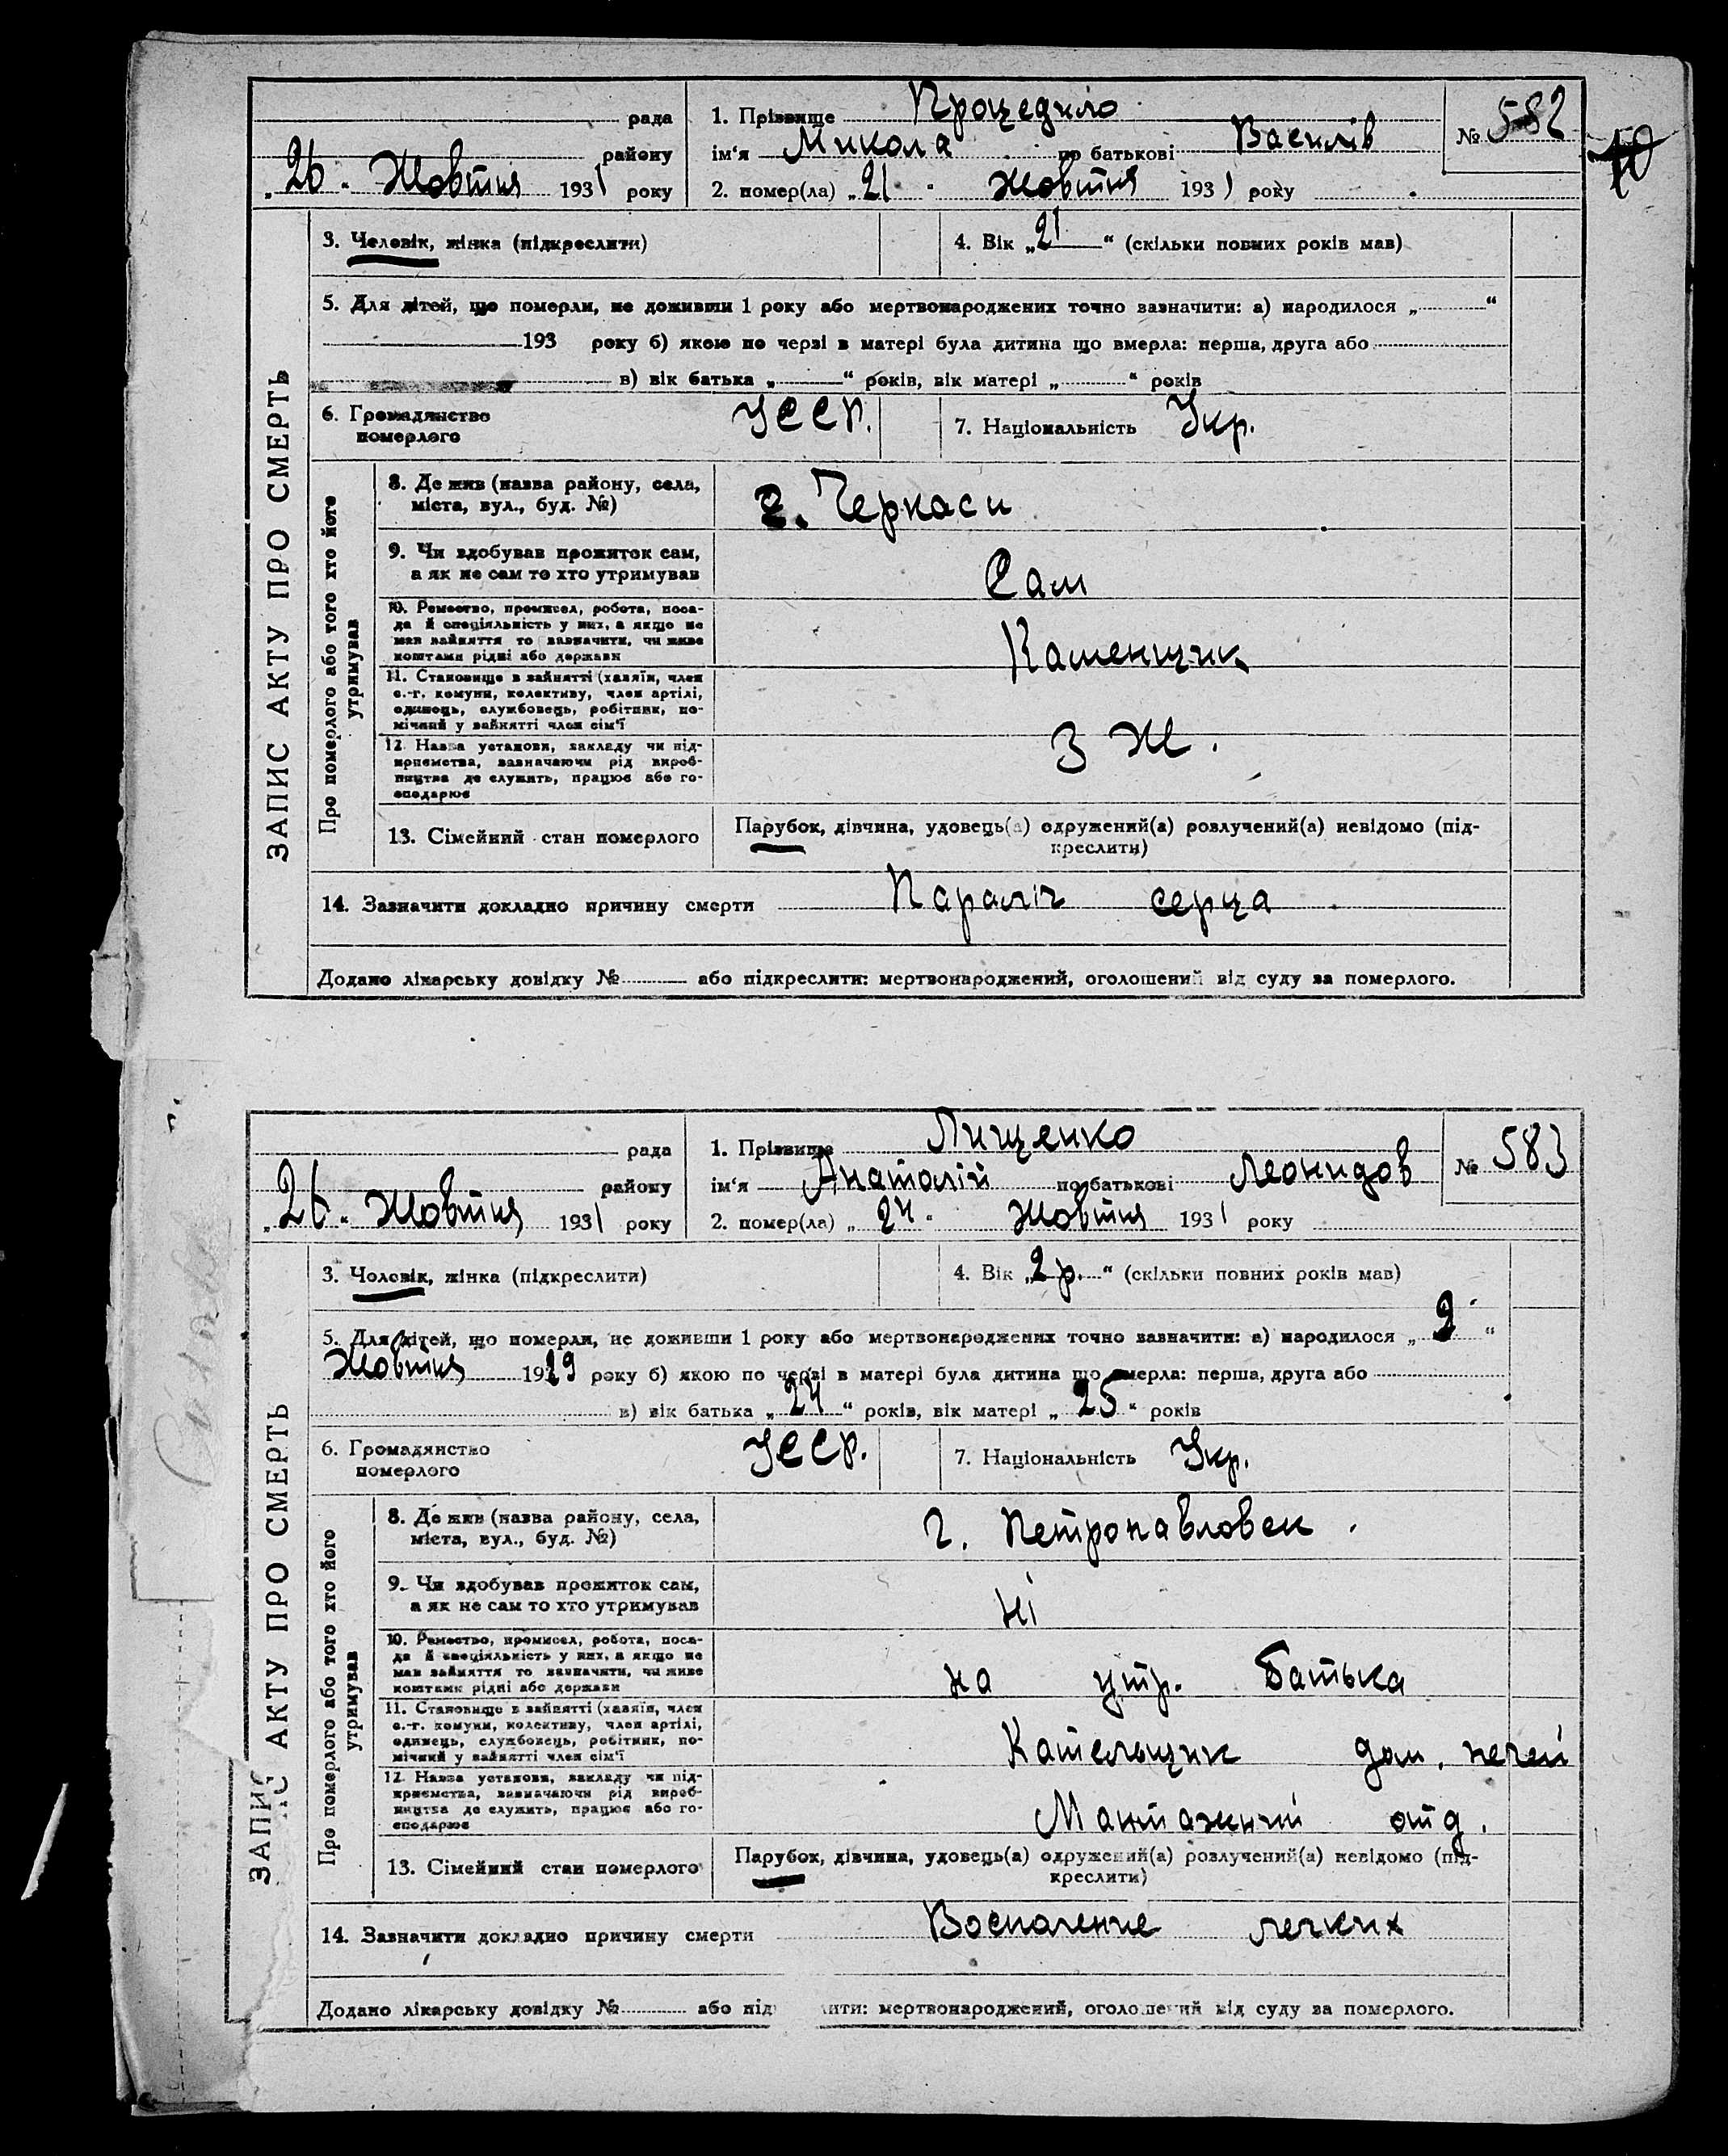 рада
1. Прізвище Процедило
№ 582
району
ім'я Микола по батькові Василів
„26" Жовтня 1931 року
2. помер(ла) „21" Жовтня 1931 року
ЗАПИС АКТУ ПРО СМЕРТЬ
3. Чоловік, жінка (підкреслити)
4. Вік „21" (скільки повних років мав)
5. Для дітей, що померли, не доживши 1 року або мертвонароджених точно зазначити: а) народилося „ "
193 року б) якою по черзі в матері була дитина що вмерла: перша, друга або
в) вік батька „ " років, вік матері „ " років
6. Громадянство померлого УССР.
7. Національність Укр.
Про померлого або того хто його утримував
8. Де жив (назва району, села, міста, вул., буд. №)
г. Черкаси
9. Чи здобував прожиток сам, а як не сам то хто утримував
Сам
10. Ремество, промисел, робота, посада й спеціяльність у них, а якщо не мав зайняття то зазначити, чи живе коштами рідні або держави
Каменщик
11. Становище в зайнятті (хазяїн, член с.-г. комуни, колективу, член артілі, одинець, службовець, робітник, помічний у зайнятті член сім'ї
12. Назва установи, закладу чи підприємства, зазначаючи рід виробництва де служить, працює або господарює
З Ж.
13. Сімейний стан померлого
Парубок, дівчина, удовець(а) одружений(а) розлучений(а) невідомо (підкреслити)
14. Зазначити докладно причину смерти Параліч серца
Додано лікарську довідку № або підкреслити: мертвонароджений, оголошений від суду за померлого.
рада
1. Прізвище Лищенко
№ 583
району
ім'я Анатолій по батькові Леонидов
„26" Жовтня 1931 року
2. помер(ла) „24" Жовтня 1931 року
ЗАПИС АКТУ ПРО СМЕРТЬ
3. Чоловік, жінка (підкреслити)
4. Вік „2 р." (скільки повних років мав)
5. Для дітей, що померли, не доживши 1 року або мертвонароджених точно зазначити: а) народилося „9"
Жовтня 1929 року б) якою по черзі в матері була дитина що вмерла: перша, друга або
в) вік батька „24" років, вік матері „25" років
6. Громадянство померлого УССР.
7. Національність Укр.
Про померлого або того хто його утримував
8. Де жив (назва району, села, міста, вул., буд. №)
г. Петропавловск
9. Чи здобував прожиток сам, а як не сам то хто утримував
Ні
10. Ремество, промисел, робота, посада й спеціяльність у них, а якщо не мав зайняття то зазначити, чи живе коштами рідні або держави
на утр. Батька
11. Становище в зайнятті (хазяїн, член с.-г. комуни, колективу, член артілі, одинець, службовець, робітник, помічний у зайнятті член сім'ї
Кательщик дом. печей
12. Назва установи, закладу чи підприємства, зазначаючи рід виробництва де служить, працює або господарює
Мантажний отд.
13. Сімейний стан померлого
Парубок, дівчина, удовець(а) одружений(а) розлучений(а) невідомо (підкреслити)
14. Зазначити докладно причину смерти Воспаление легких
Додано лікарську довідку № або підкреслити: мертвонароджений, оголошений від суду за померлого.